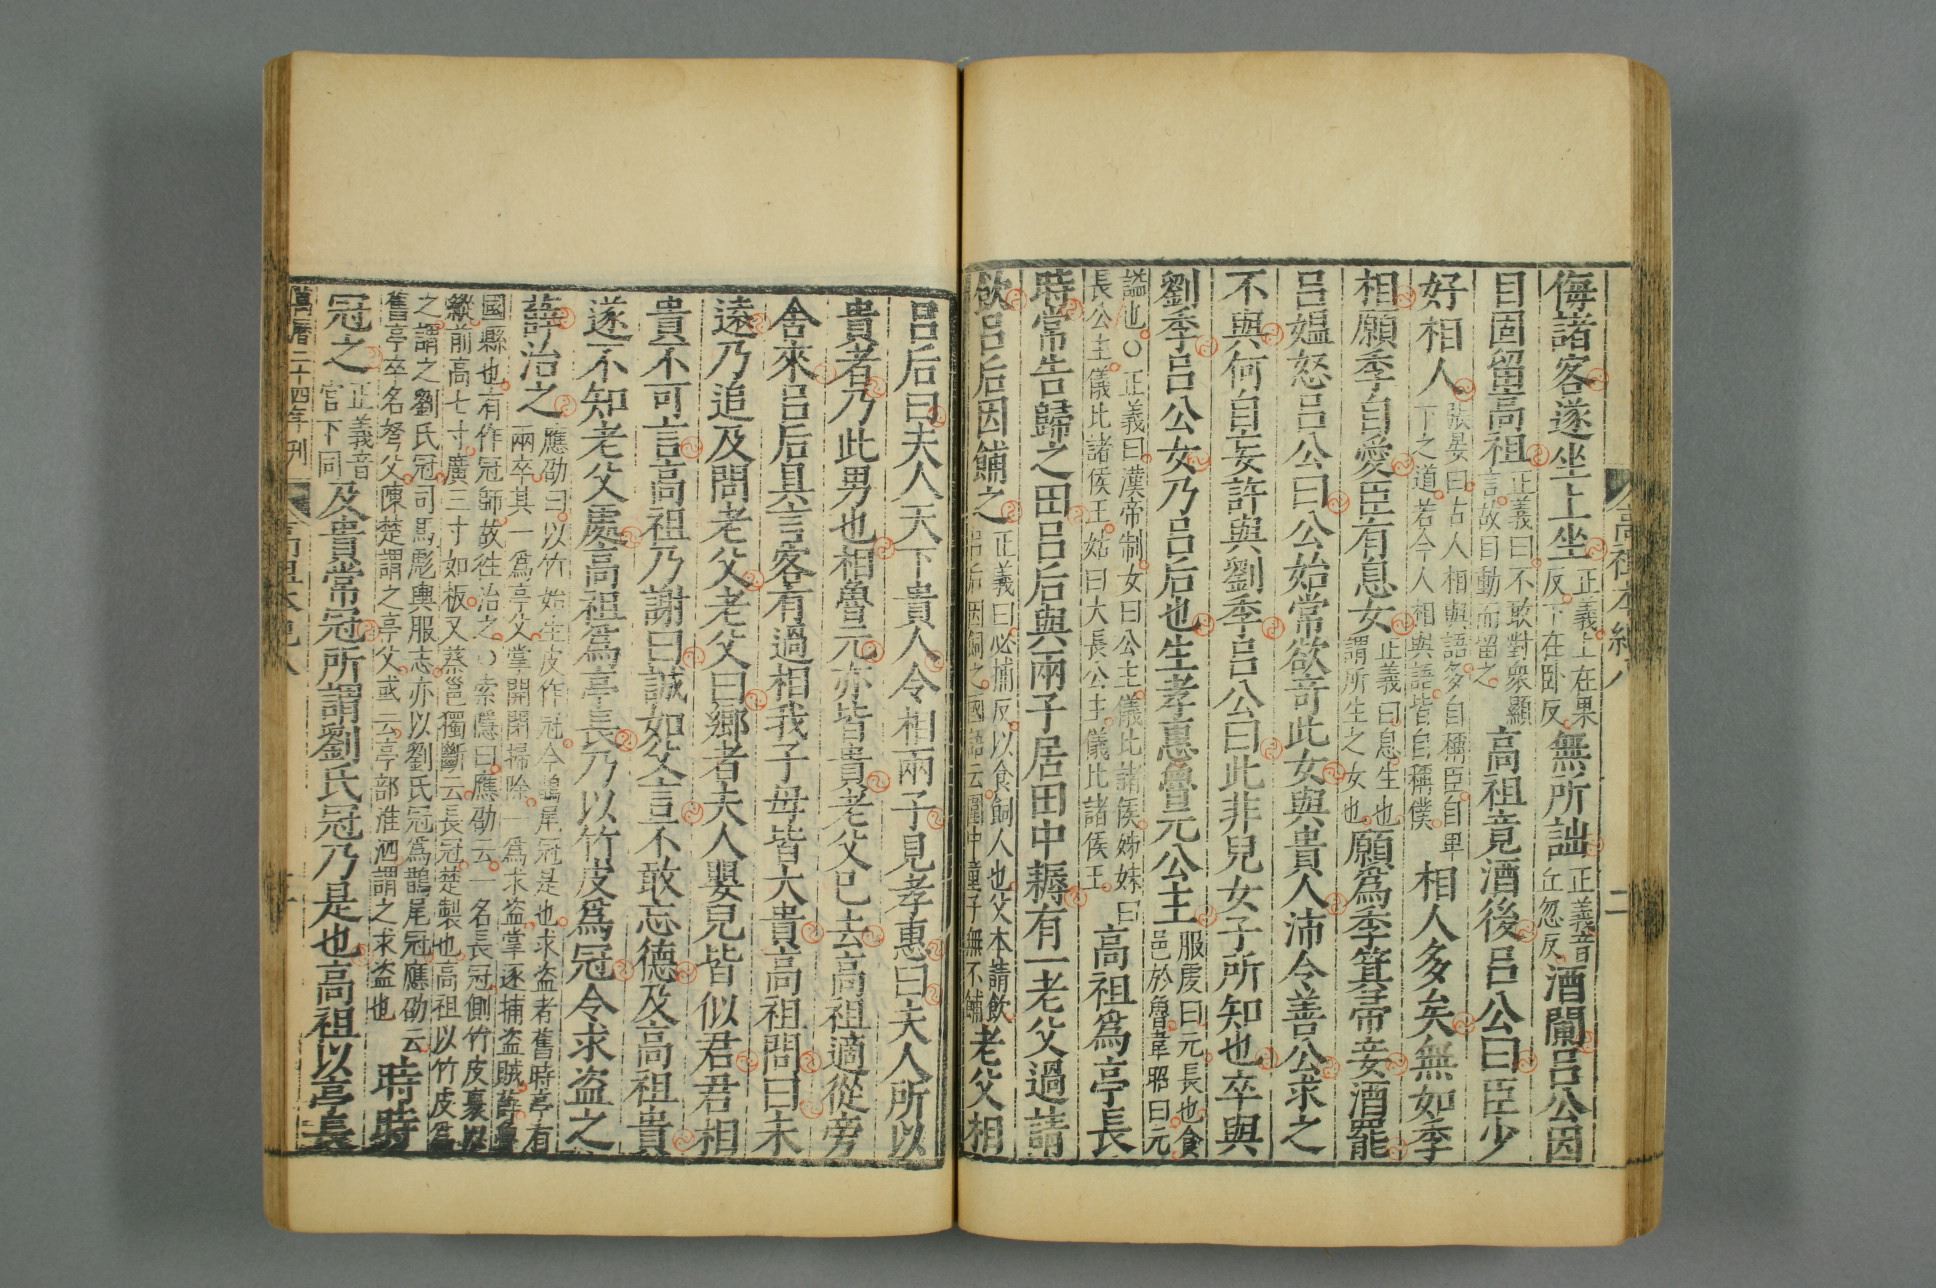 高祖本紀八
二
侮諸客遂坐上坐正義上在果反下在卧反無所詘正義音丘忽反酒闌呂公因
目固留高祖正義曰不敢對衆顯言故目動而留之高祖竟酒後呂公曰臣少
好相人張晏曰古人相與語多自稱臣自卑下之道若今人相與語皆自稱僕相人多矣無如季
相願季自愛臣有息女正義曰息生也謂所生之女也願爲季箕帚妾酒罷
呂媼怒呂公曰公始常欲竒此女與貴人沛令善公求之
不與何自妄許與劉季呂公曰此非兒女子所知也卒與
劉季呂公女乃呂后也生孝惠魯元公主服虔曰元長也食邑於魯韋昭曰元
謚也○正義曰漢帝制女曰公主儀比諸侯姊妹曰長公主儀比諸侯王姑曰大長公主儀比諸侯王高祖爲亭長
時常告歸之田呂后與兩子居田中耨有一老父過請
飲呂后因餔之正義曰必捕反以食飼人也父本請飲呂后因飼之國語云國中童子無不餔老父相
呂后曰夫人天下貴人令相兩子見孝惠曰夫人所以
貴者乃此男也相魯元亦皆貴老父已去高祖適從旁
舍來呂后具言客有過相我子母皆大貴高祖問曰未
遠乃追及問老父老父曰鄉者夫人嬰兒皆似君君相
貴不可言高祖乃謝曰誠如父言不敢忘德及高祖貴
遂不知老父處高祖爲亭長乃以竹皮爲冠令求盗之
薛治之應劭曰以竹始生皮作冠今鵲尾冠是也求盗者舊時亭有兩卒其一爲亭父掌開閉掃除一爲求盗掌逐捕盗賊薛魯
國縣也有作冠師故徃治之○索隱曰應劭云一名長冠側竹皮裹以縱前高七寸廣三寸如板又蔡邕獨斷云長冠楚製也高祖以竹皮爲
之謂之劉氏冠司馬彪輿服志亦以劉氏冠爲鵲尾冠應劭云舊亭卒名弩父陳楚謂之亭父或云亭部淮泗謂之求盗也時時
冠之正義音官下同及貴常冠所謂劉氏冠乃是也高祖以亭長
萬曆二十四年刊
高祖本紀八